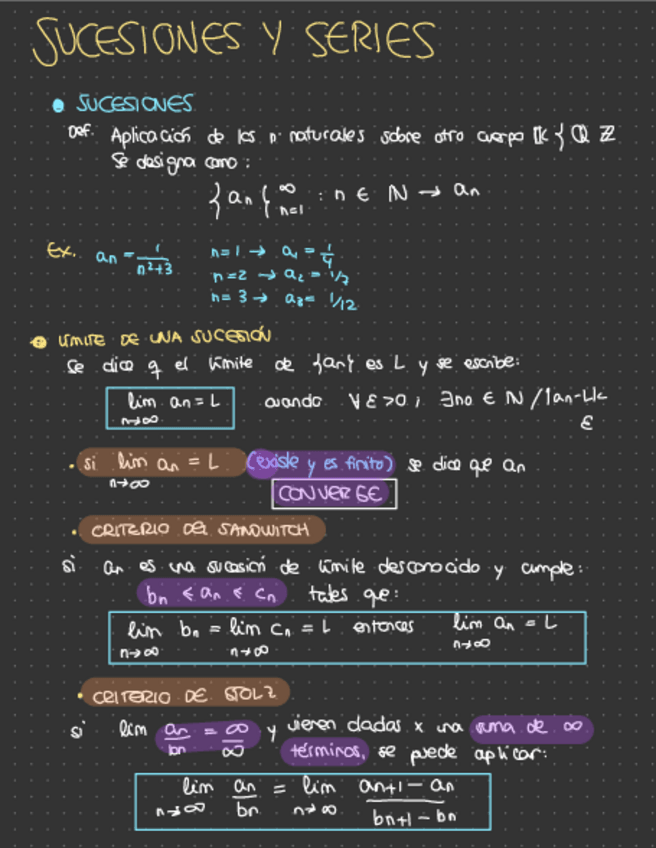 SUCESIONES Y SERIES
• SUCESIONES
Def. Aplicación de los nº naturales sobre otro cuerpo K { Q Z
Se designa como:
{an{ ∞ n=1 : n ∈ N → an
Ex. an = 1/n²+3 n=1 → a1 = 1/4
n=2 → a2 = 1/7
n=3 → a3= 1/12
• LÍMITE DE UNA SUCESIÓN
Se dice q el límite de {an} es L y se escribe:
lim n→∞ an = L cuando ∀ε>0, ∃no ∈ N /|an-L|<
ε
• si lim n→∞ an = L (existe y es finito) se dice que an
CONVERGE
• CRITERIO DEL SANDWITCH
si an es una sucesión de límite desconocido y cumple:
bn ≤ an ≤ cn tales que:
lim n→∞ bn = lim n→∞ cn = L entonces lim n→∞ an = L
• CRITERIO DE STOLZ
si lim an/bn = ∞/∞ y vienen dadas x una suma de ∞
términos, se puede aplicar:
lim n→∞ an/bn = lim n→∞ an+1 - an/bn+1 - bn